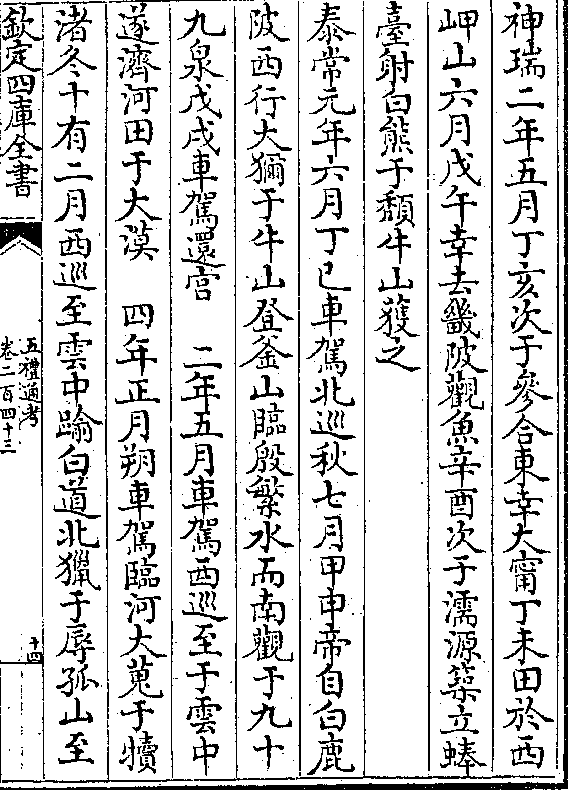 神瑞二年五月丁亥次于參合東幸大甯丁未田於西
岬山六月戊午幸去畿陂觀魚辛酉次于濡源築立蜯
臺射白熊于頹牛山獲之
泰常元年六月丁巳車駕北巡秋七月甲申帝自白鹿
陂西行大獮于牛山登釜山臨殷繁水而南觀于九十
九泉戊戌車駕還宫　二年五月車駕西巡至于雲中
遂濟河田于大漠　四年正月朔車駕臨河大蒐于犢
渚冬十有二月西巡至雲中踰白道北獵于辱孤山至
欽定四庫全書
五禮通考
卷二百四十三
十四